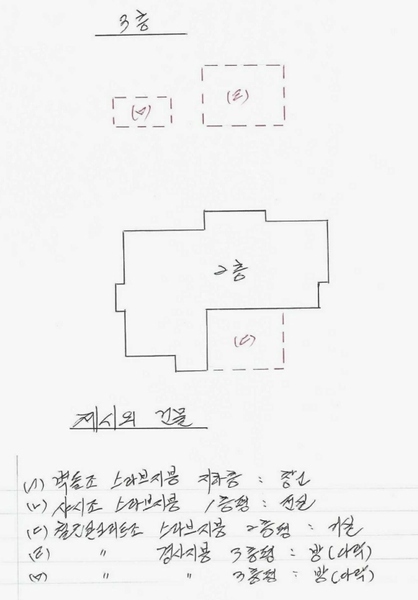 3층
(ㅁ) (ㄹ)
2층
(ㄷ)
제시외 건물
(ㄱ) 벽돌조 스라브지붕 지하층 : 창고
(ㄴ) 샤시조 스라브지붕 1층평 :
(ㄷ) 철근콘크리트조 스라브지붕 2층평 : 거실
(ㄹ) 〃 경사지붕 3층평 : 방(다락)
(ㅁ) 〃 〃 3층평 : 방(다락)